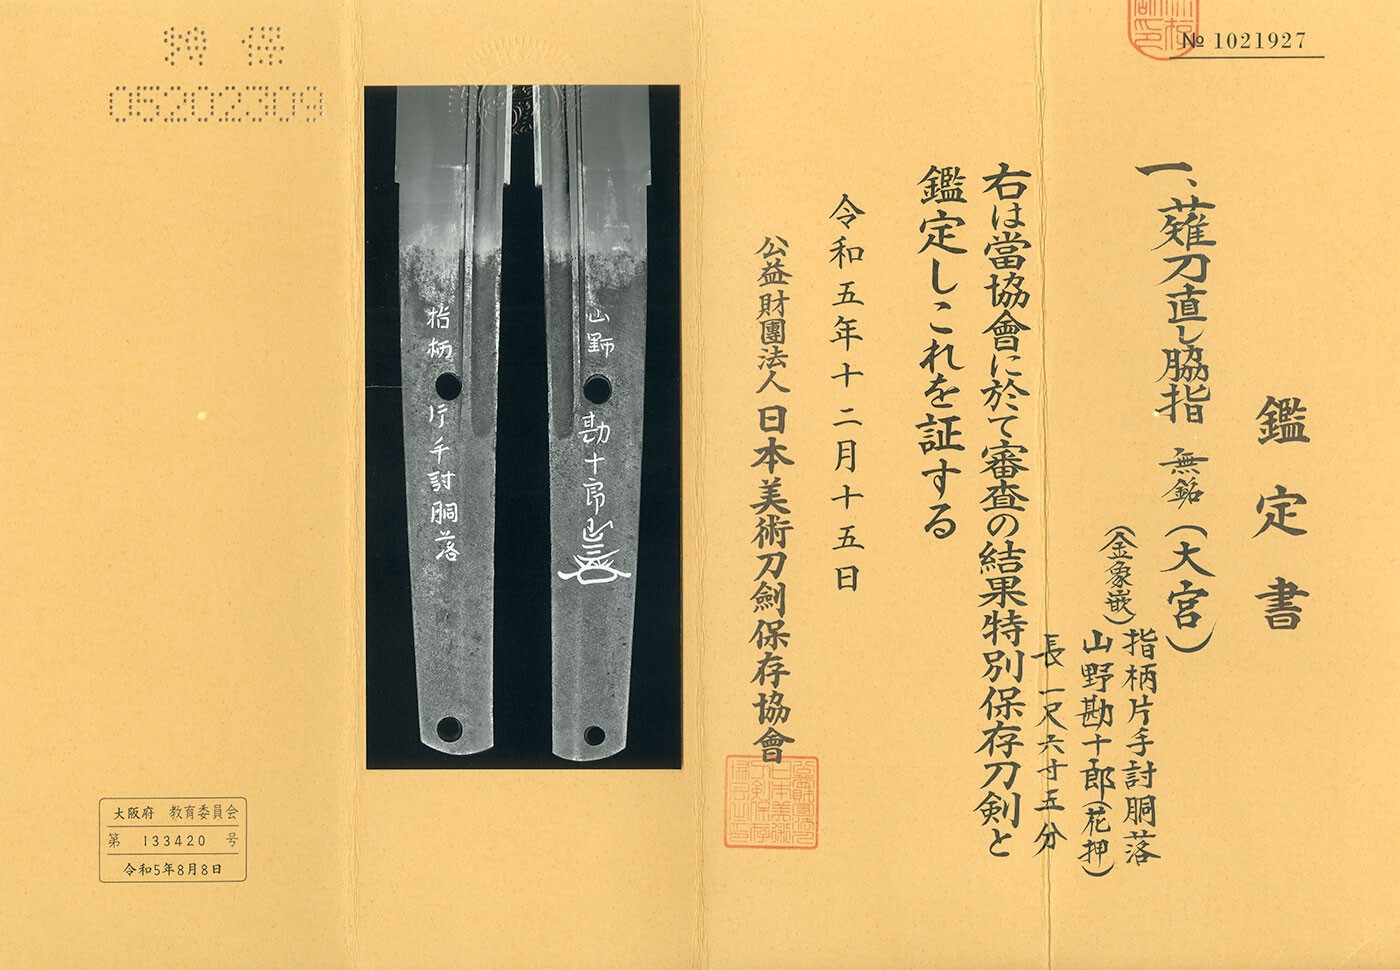 № 1021927
鑑定書
一、薙刀直し脇指 無銘(大宮)
(金象嵌)
指柄片手討胴落
山野勘十郎(花押)
長一尺六寸五分
右は當協會に於て審査の結果特別保存刀剣と
鑑定しこれを証する
令和五年十二月十五日
公益財團法人 日本美術刀劍保存協會
山野勘十郎
指柄片手討胴落
特保
05202309
大阪府 教育委員会
第 133420 号
令和5年8月8日